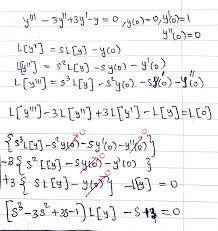 y''' - 3y'' + 3y' - y = 0 , y(0)=0, y'(0)=1
y''(0)=0
L[y'] = SL[y] - y(0)
L[y''] = s²L[y] - Sy(0) - y'(0)
L[y'''] = s³L[y] - s²y(0) - Sy'(0) - y''(0)
L[y'''] - 3L[y''] + 3L[y'] - L[y] = L[0]
{ s³L[y] - s²y(0) - Sy'(0) - y''(0) }
-3 { s²L[y] - Sy(0) - y'(0) }
+3 { SL[y] - y(0) } - L[y] = 0
[s³ - 3s² + 3s - 1) L[y] - S + 3 = 0